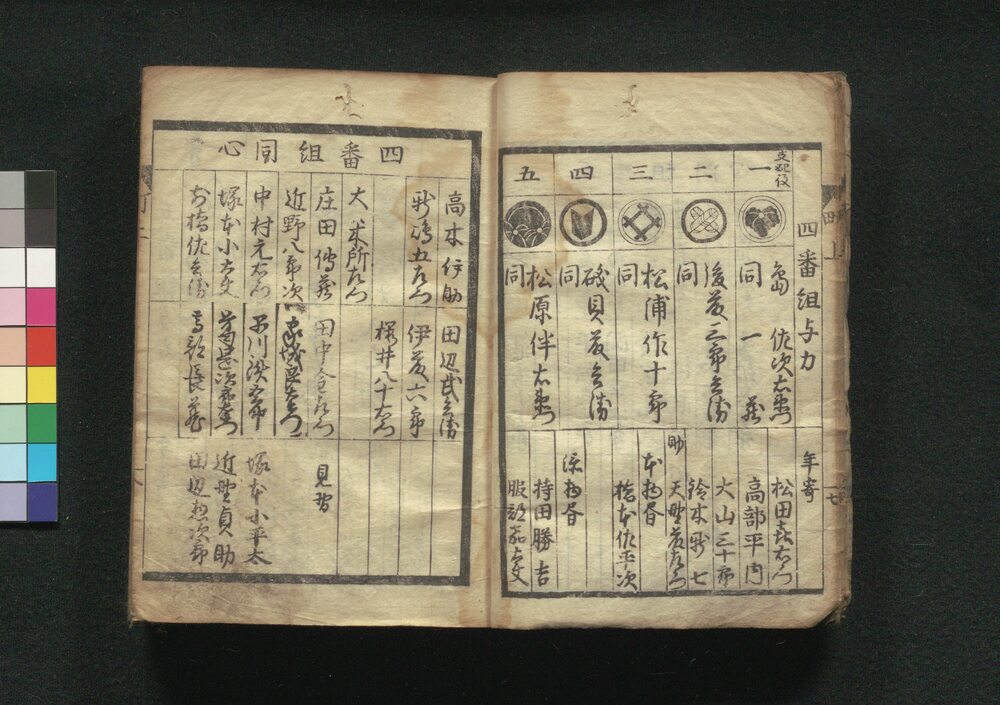 四番組与力
支配役
一
島 佐次右衛門
同 一蔵
二
後藤三郎兵衛
同
三
松浦作十郎
同
四
磯貝藤兵衛
同
五
松原伴右衛門
同
年寄
松田喜右衛門
高部平内
大山三十郎
鈴木新七
助
天野藤左衛門
本物書
橋本佐平次
添物書
持田勝吉
服部茄大夫
四番組同心
高木伊助
新嶋五左衛門
大米所左衛門
庄田傳蔵
近野八郎次
中村元右衛門
塚本小大夫
前橋佐兵衛
田辺武兵衛
伊藤六郎
桜井八十右衛門
田中金左衛門
高部長蔵
見習
塚本小平太
近野貞助
田辺惣次郎